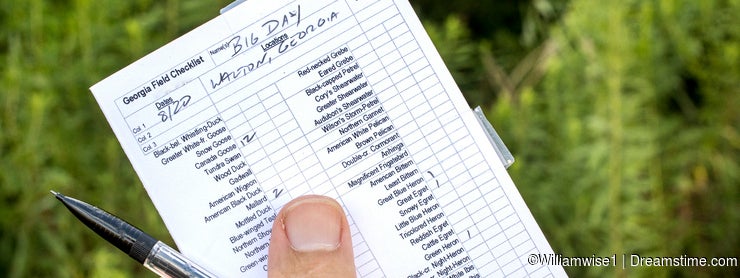 Georgia Field Checklist
Name(s) BIG DAY
Locations
WALTON, GEORGIA
Dates
Col 1 8/20
Col 2
Col 3
Black-bel. Whistling-Duck
Greater White-fr. Goose
Snow Goose
Canada Goose 12
Tundra Swan
Wood Duck
Gadwall
American Wigeon
American Black Duck
Mallard 2
Mottled Duck
Blue-winged Teal
Northern
Northern
Green-win
Red-necked Grebe
Eared Grebe
Black-capped Petrel
Cory's Shearwater
Greater Shearwater
Audubon's Shearwater
Wilson's Storm-Petrel
Northern Gannet
American White Pelican
Brown Pelican
Double-cr. Cormorant
Anhinga
Magnificent Frigatebird
American Bittern
Least Bittern
Great Blue Heron 1
Great Egret 1
Snowy Egret
Little Blue Heron
Tricolored Heron
Reddish Egret
Cattle Egret
Green Heron 1
Black-cr. Night-Heron
Night-Heron
White Ibis
©Williamwise1 | Dreamstime.com